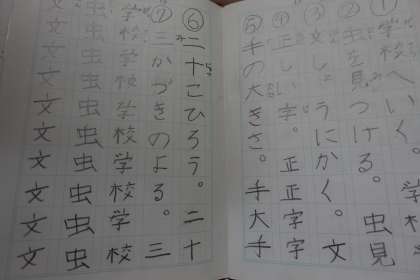 ①学校へいく。学
②虫を見つける。虫見
③文しょうにかく。文
④正しい字。正正字字
⑤手の大きさ。手大手
⑥二十こひろう。二十
⑦三かづきのよる。三
学校学校学校学校学校
虫虫虫虫虫虫虫虫虫虫
文文文文文文文文文文